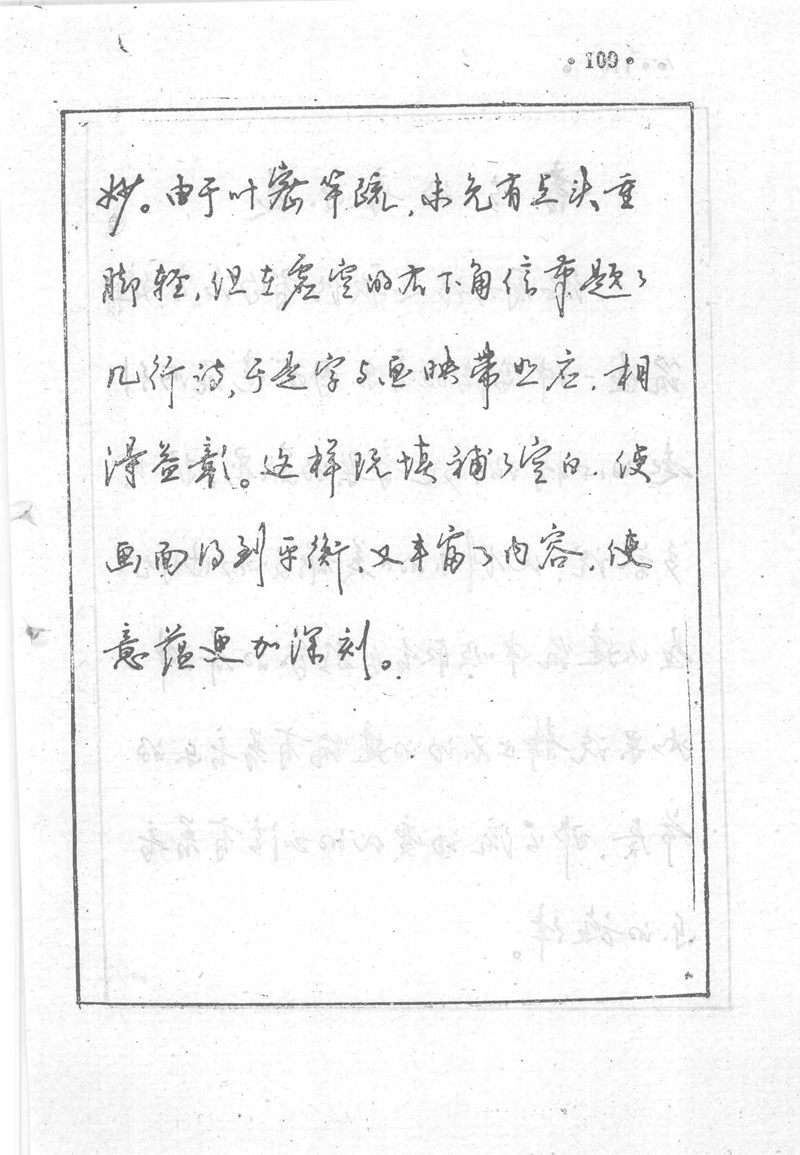 ·109·
妙。由于叶密竿疏，未免有点头重
脚轻，但在虚空的右下角信笔题了
几行诗，于是字与画映带照应，相
得益彰。这样既填补了空白，使
画面得到平衡，又丰富了内容，使
意蕴更加深刻。